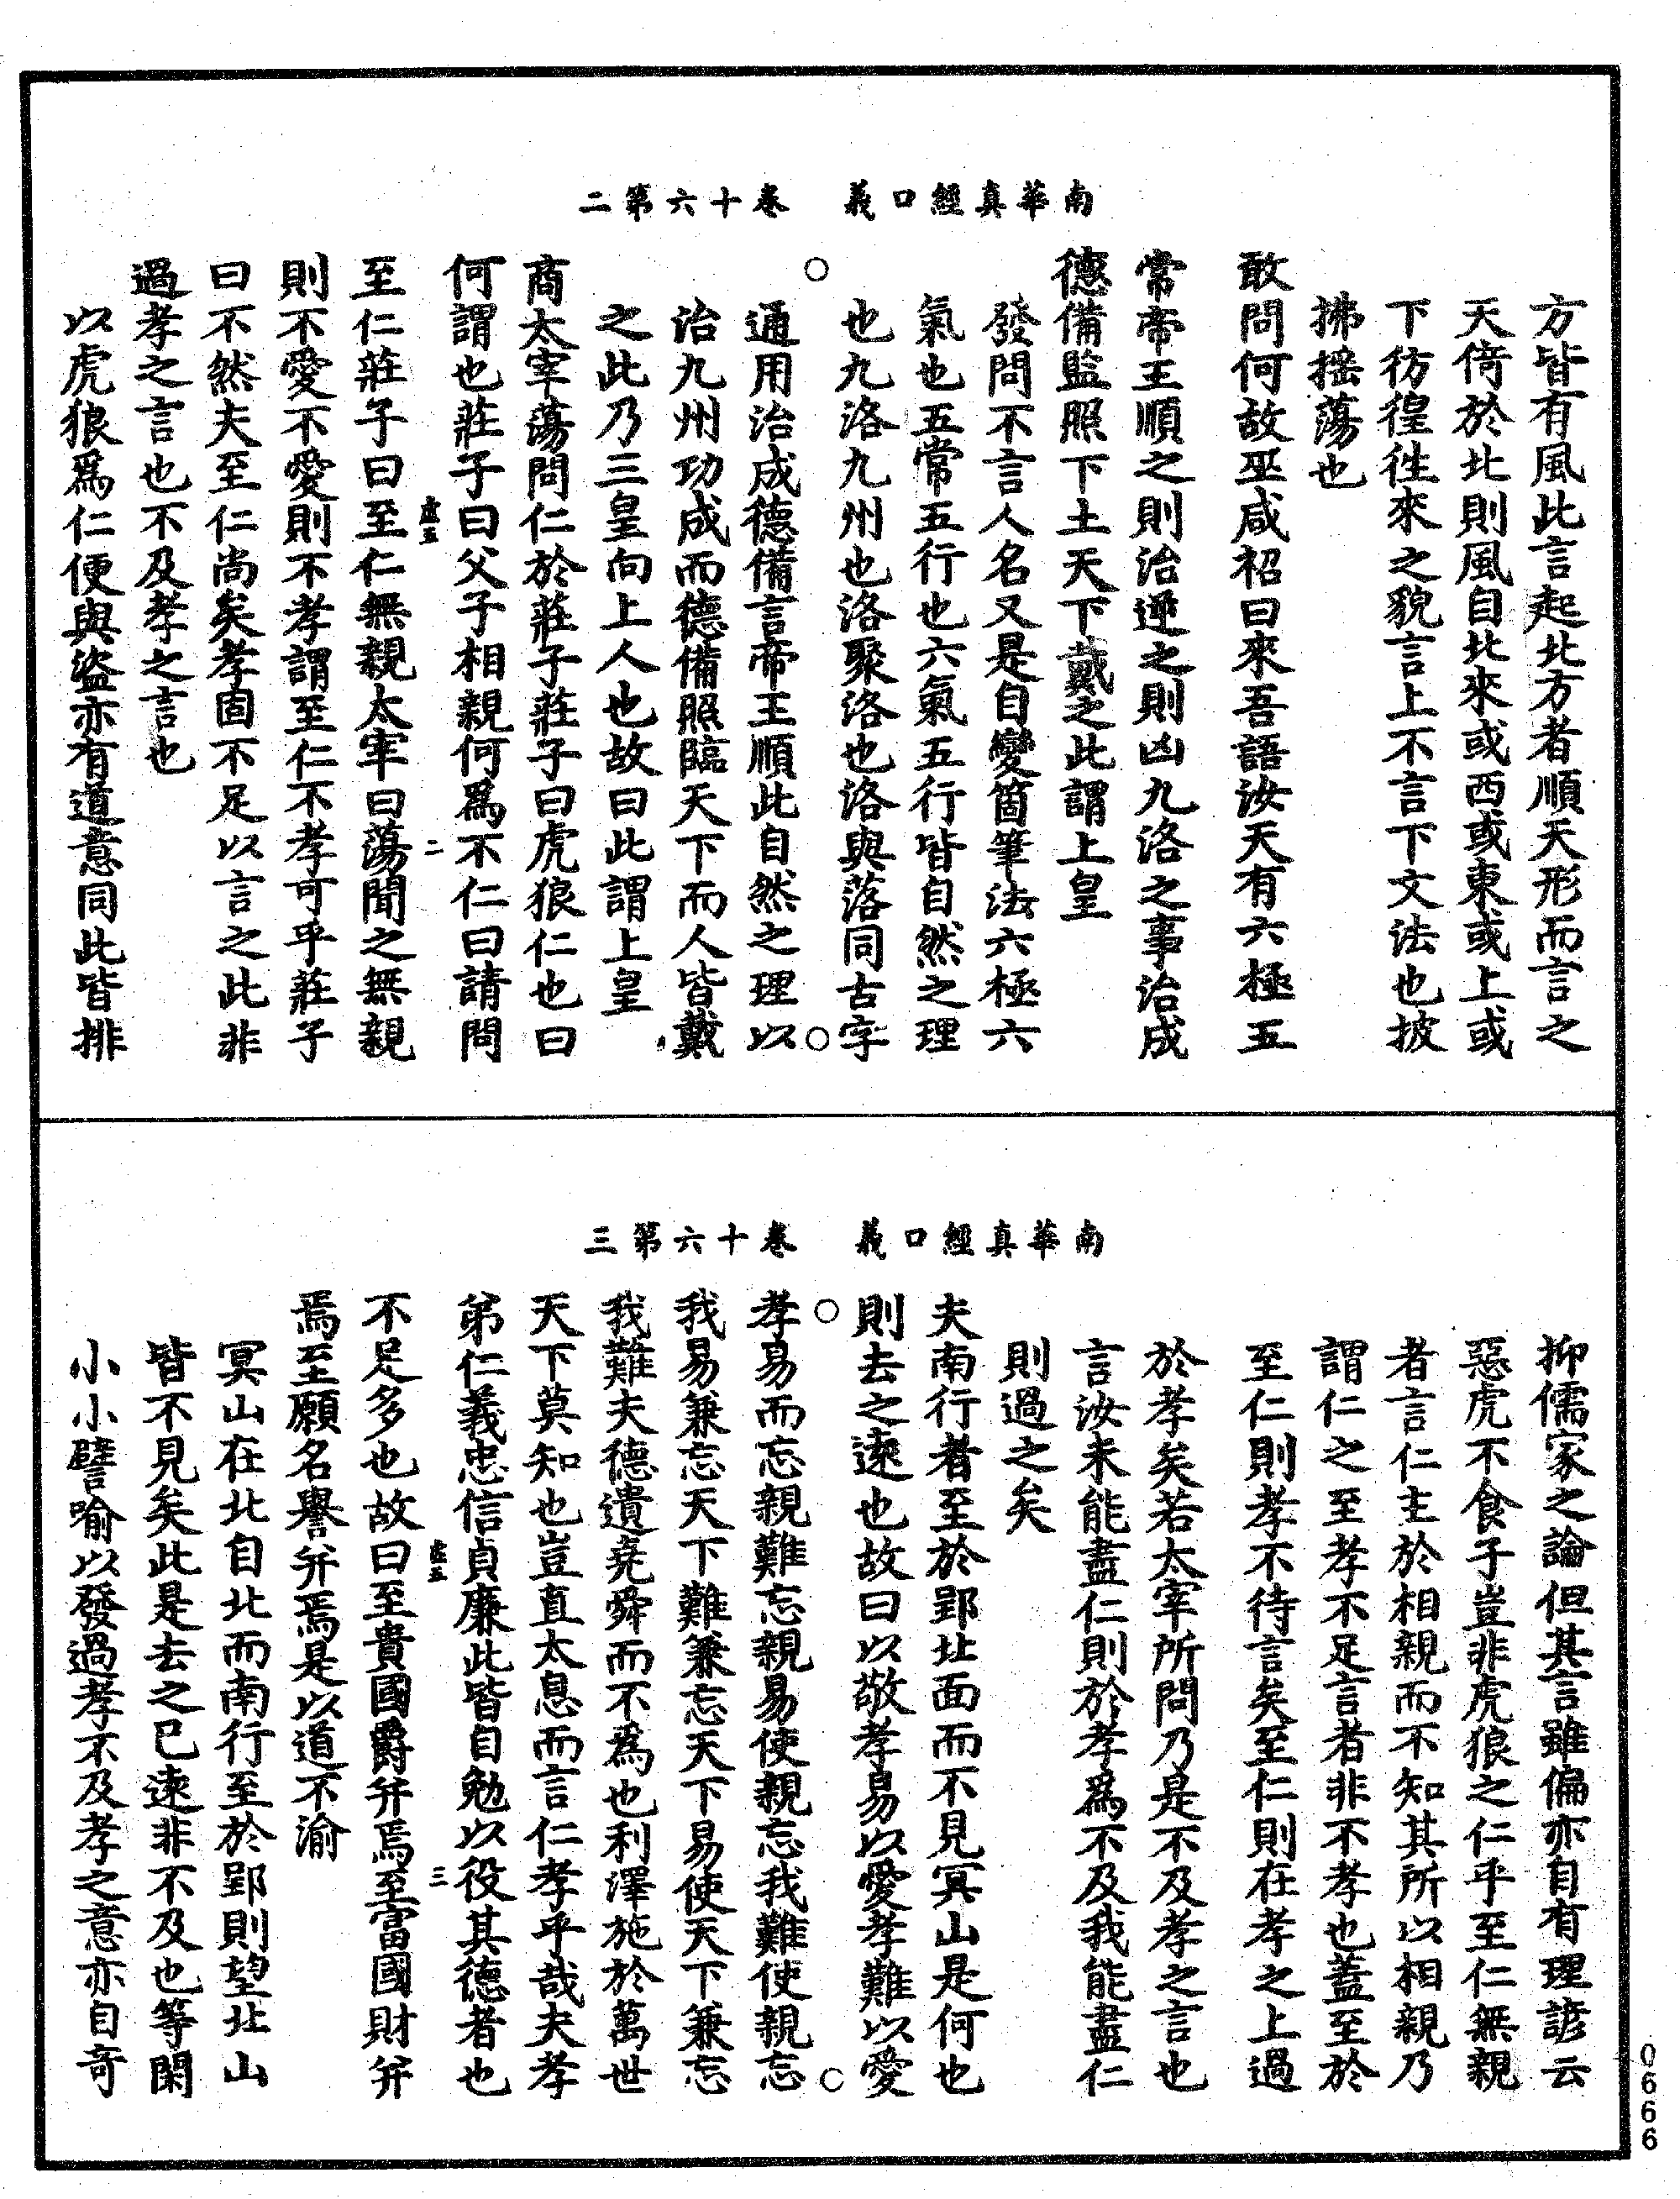 南華真經口義　卷十六第二
方皆有風此言起北方者順天形而言之
天倚於北則風自北來或西或東或上或
下彷徨往來之貌言上不言下文法也披
拂摇蕩也
敢問何故巫咸祒曰來吾語汝天有六極五
常帝王順之則治逆之則凶九洛之事治成
德備監照下土天下戴之此謂上皇
發問不言人名又是自變箇筆法六極六
氣也五常五行也六氣五行皆自然之理
也九洛九州也洛聚洛也洛與落同古字
通用治成德備言帝王順此自然之理以
治九州功成而德備照臨天下而人皆戴
之此乃三皇向上人也故曰此謂上皇
商太宰蕩問仁於莊子莊子曰虎狼仁也曰
何謂也莊子曰父子相親何爲不仁曰請問
虛五　二
至仁莊子曰至仁無親太宰曰蕩聞之無親
則不愛不愛則不孝謂至仁不孝可乎莊子
曰不然夫至仁尚矣孝固不足以言之此非
過孝之言也不及孝之言也
以虎狼爲仁便與盜亦有道意同此皆排
南華真經口義　卷十六第三
抑儒家之論但其言雖偏亦自有理諺云
惡虎不食子豈非虎狼之仁乎至仁無親
者言仁主於相親而不知其所以相親乃
謂仁之至孝不足言者非不孝也蓋至於
至仁則孝不待言矣至仁則在孝之上過
於孝矣若太宰所問乃是不及孝之言也
言汝未能盡仁則於孝爲不及我能盡仁
則過之矣
夫南行者至於郢北面而不見冥山是何也
則去之遠也故曰以敬孝易以愛孝難以愛
孝易而忘親難忘親易使親忘我難使親忘
我易兼忘天下難兼忘天下易使天下兼忘
我難夫德遺堯舜而不爲也利澤施於萬世
天下莫知也豈直太息而言仁孝乎哉夫孝
弟仁義忠信貞廉此皆自勉以役其德者也
虛五　三
不足多也故曰至貴國爵并焉至富國財并
焉至願名譽并焉是以道不渝
冥山在北自北而南行至於郢則望北山
皆不見矣此是去之已遠非不及也等閑
小小譬喻以發過孝不及孝之意亦自奇
0666